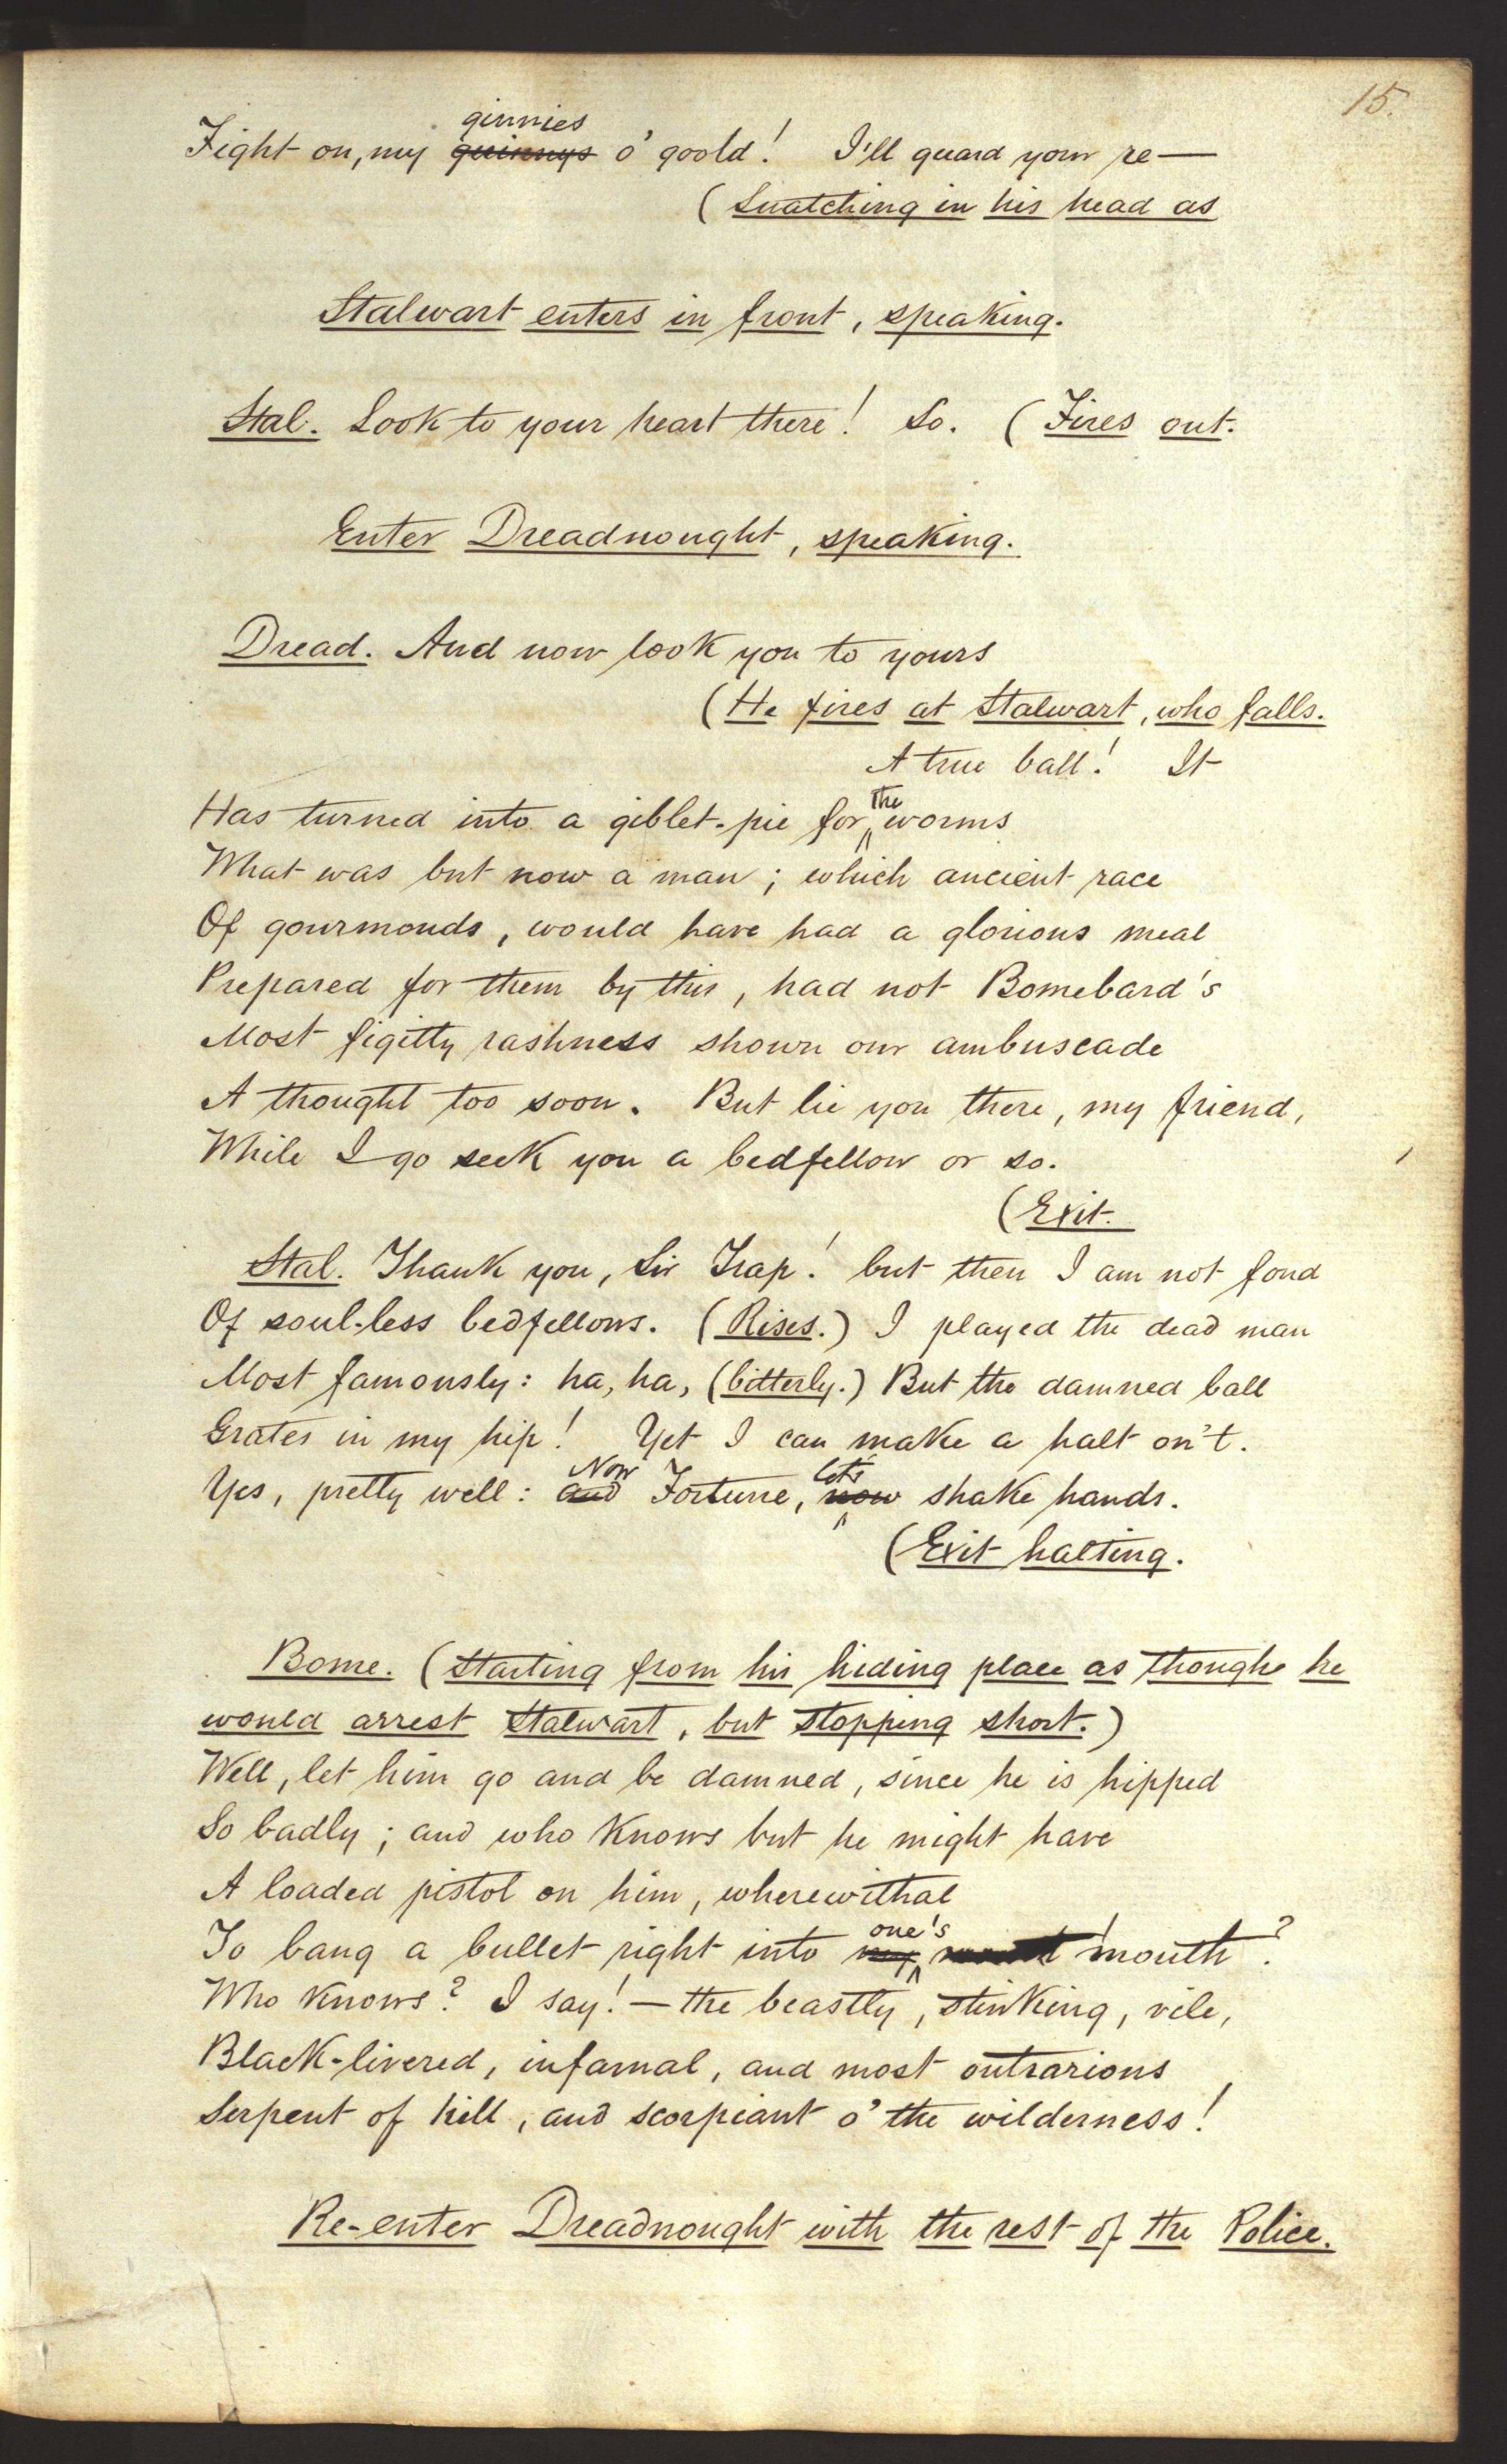 15.
ginnies
Fight on, my guinnys o' goold! I'll guard your re—
(Snatching in his head as
Stalwart enters in front, speaking.
Stal. Look to your heart there! So. (Fires out.
Enter Dreadnought, speaking.
Dread. And now look you to yours
(He fires at Stalwart, who falls.
A true ball! It
the
Has turned into a giblet-pie for worms
What was but now a man; which ancient race
Of gourmonds, would have had a glorious meal
Prepared for them by this, had not Bomebard's
Most figitty rashness shown our ambuscade
A thought too soon. But lie you there, my friend,
While I go seek you a bedfellow or so.
(Exit.
Stal. Thank you, Sir Trap! but then I am not fond
Of soul-less bedfellows. (Rises.) I played the dead man
Most famously: ha, ha, (bitterly.) But the damned ball
Grates in my hip! Yet I can make a halt on't.
Now let's
Yes, pretty well: and Fortune, now shake hands.
(Exit halting.
Bome. (Starting from his hiding place as though he
would arrest Stalwart, but stopping short.)
Well, let him go and be damned, since he is hipped
So badly; and who knows but he might have
A loaded pistol on him, wherewithal
one's
To bang a bullet right into my mouth?
Who knows? I say!—the beastly, stinking, vile,
Black-livered, infarnal, and most outrarious
Serpent of hell, and scorpiant o' the wilderness!
Re-enter Dreadnought with the rest of the Police.